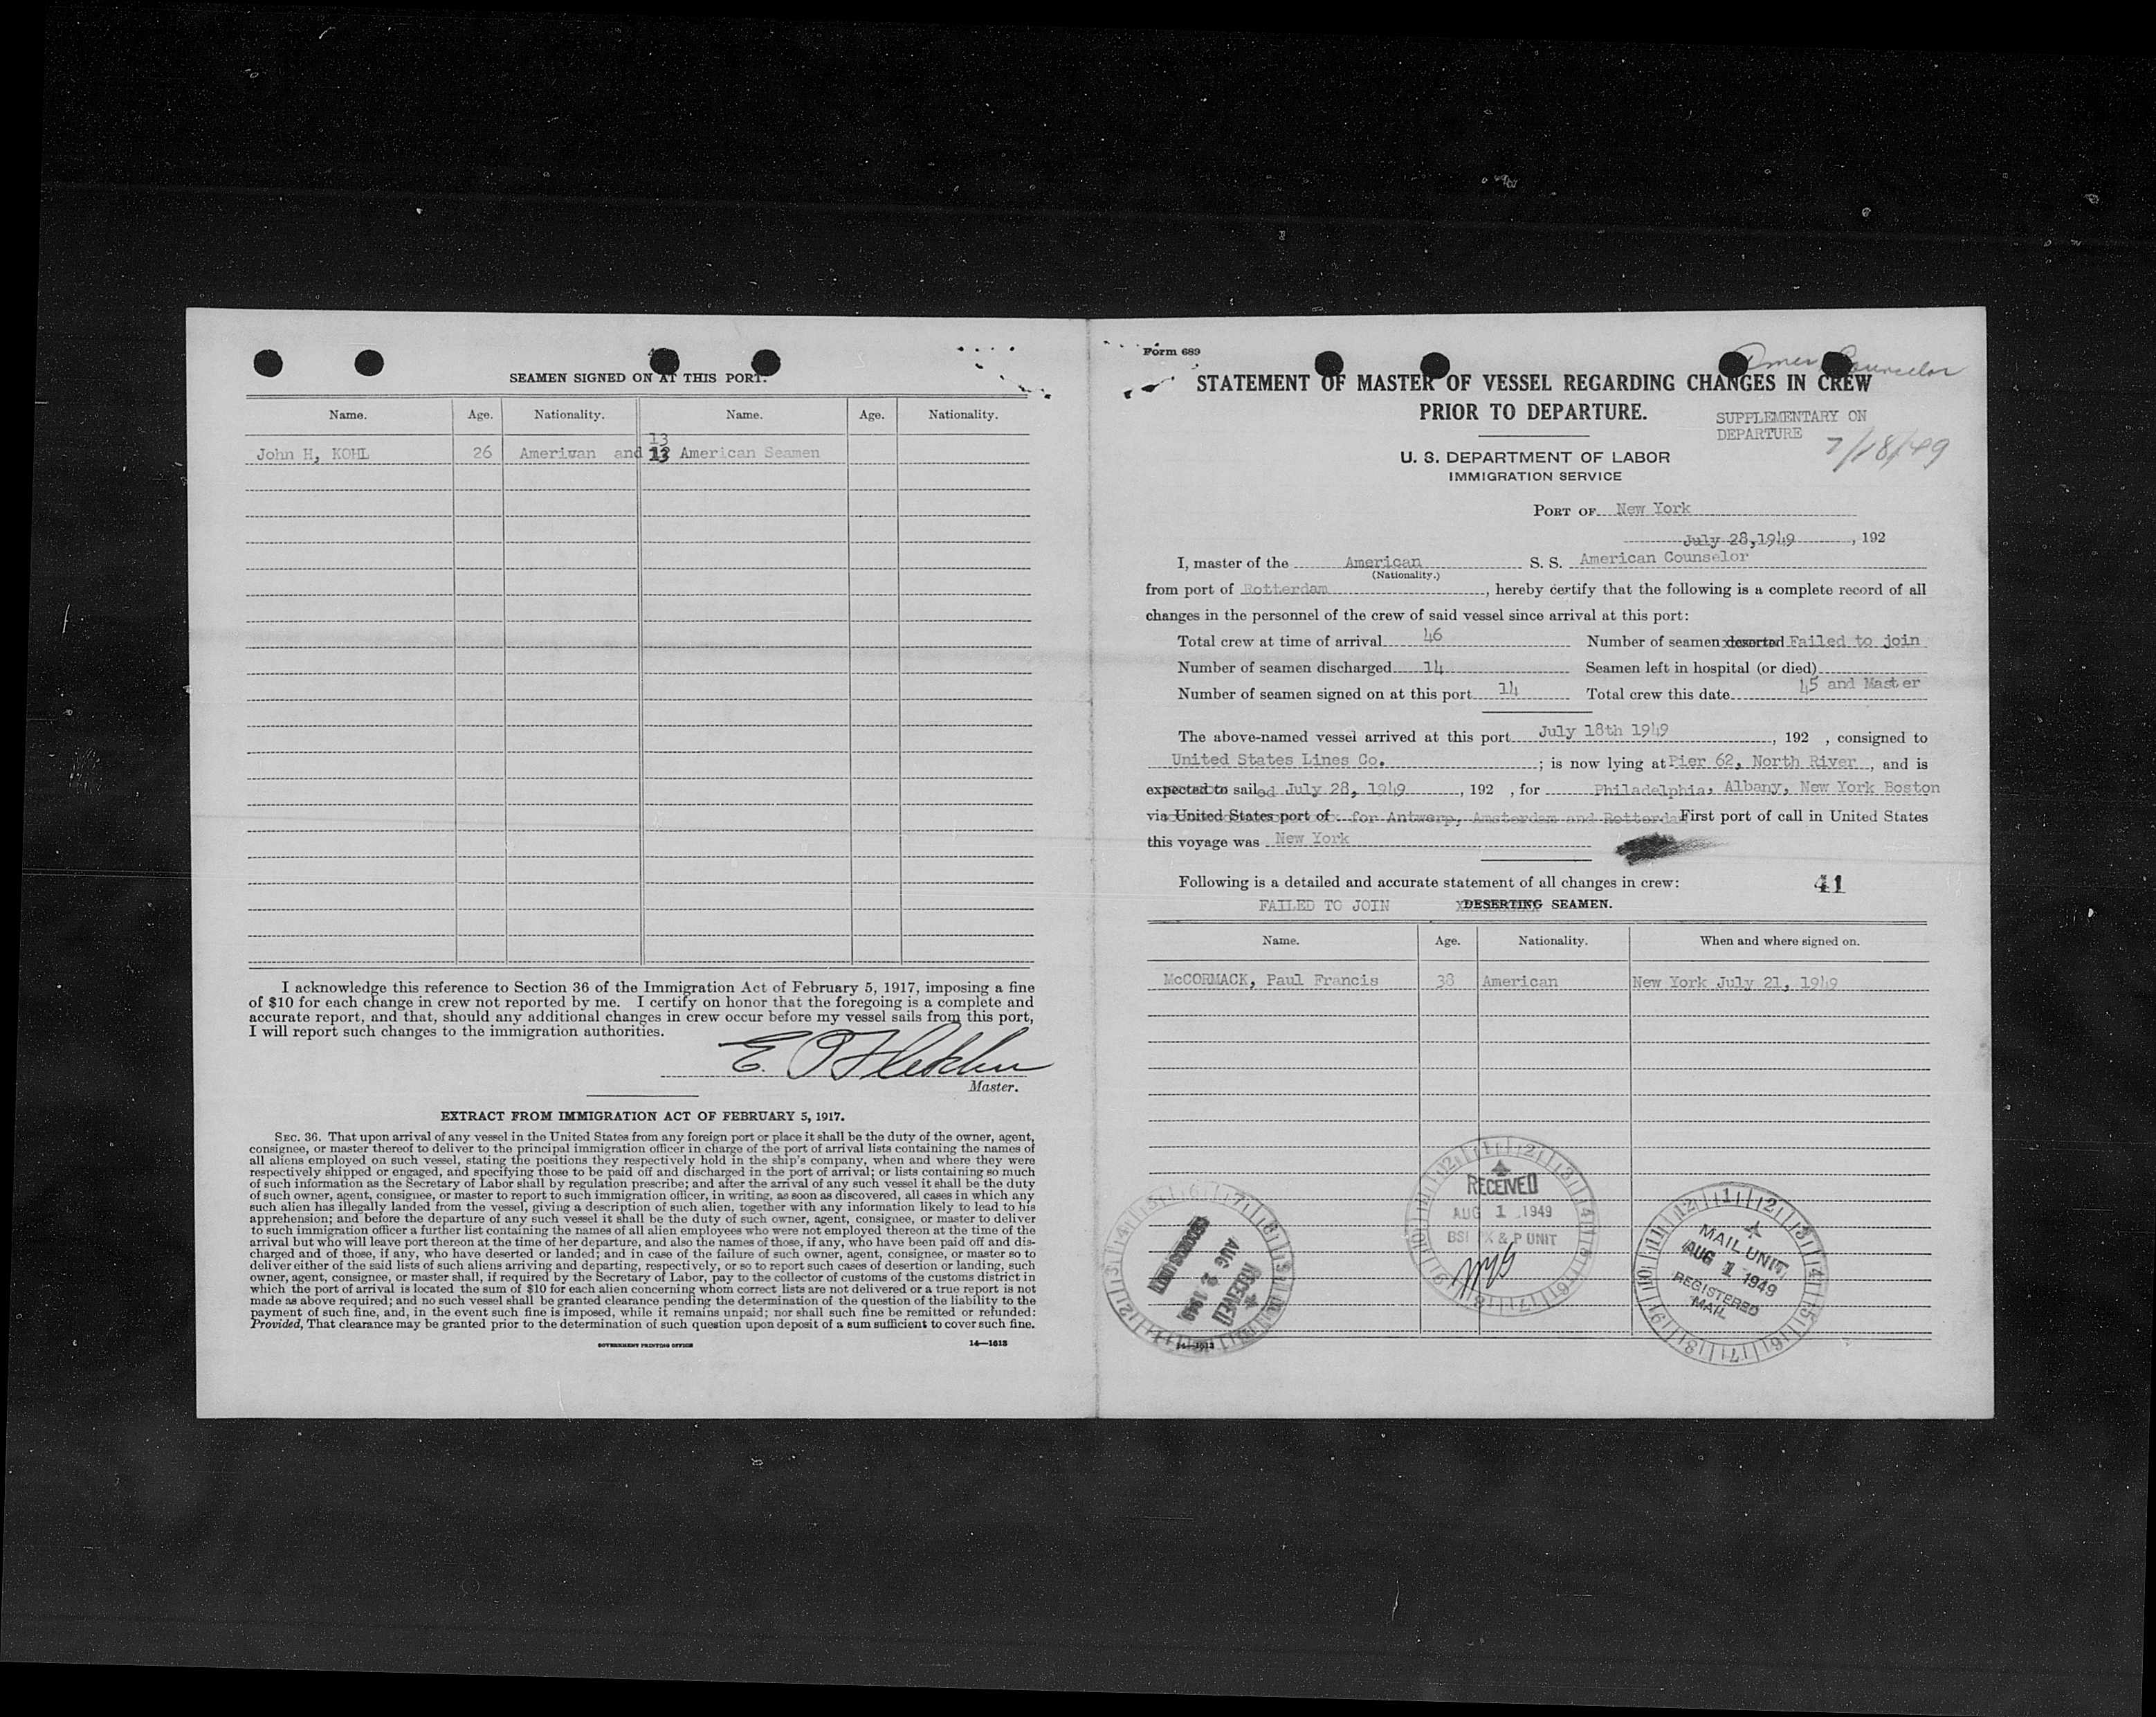 SEAMEN SIGNED ON AT THIS PORT.
Name. Age. Nationality. Name. Age. Nationality.
13
John H, KOHL 26 Amerivan and 13 American Seamen
I acknowledge this reference to Section 36 of the Immigration Act of February 5, 1917, imposing a fine
of $10 for each change in crew not reported by me. I certify on honor that the foregoing is a complete and
accurate report, and that, should any additional changes in crew occur before my vessel sails from this port,
I will report such changes to the immigration authorities.
E. P Fletcher
Master.
EXTRACT FROM IMMIGRATION ACT OF FEBRUARY 5, 1917.
SEC. 36. That upon arrival of any vessel in the United States from any foreign port or place it shall be the duty of the owner, agent,
consignee, or master thereof to deliver to the principal immigration officer in charge of the port of arrival lists containing the names of
all aliens employed on such vessel, stating the positions they respectively hold in the ship's company, when and where they were
respectively shipped or engaged, and specifying those to be paid off and discharged in the port of arrival; or lists containing so much
of such information as the Secretary of Labor shall by regulation prescribe; and after the arrival of any such vessel it shall be the duty
of such owner, agent, consignee, or master to report to such immigration officer, in writing, as soon as discovered, all cases in which any
such alien has illegally landed from the vessel, giving a description of such alien, together with any information likely to lead to his
apprehension; and before the departure of any such vessel it shall be the duty of such owner, agent, consignee, or master to deliver
to such immigration officer a further list containing the names of all alien employees who were not employed thereon at the time of the
arrival but who will leave port thereon at the time of her departure, and also the names of those, if any, who have been paid off and dis-
charged and of those, if any, who have deserted or landed; and in case of the failure of such owner, agent, consignee, or master so to
deliver either of the said lists of such aliens arriving and departing, respectively, or so to report such cases of desertion or landing, such
owner, agent, consignee, or master shall, if required by the Secretary of Labor, pay to the collector of customs of the customs district in
which the port of arrival is located the sum of $10 for each alien concerning whom correct lists are not delivered or a true report is not
made as above required; and no such vessel shall be granted clearance pending the determination of the question of the liability to the
payment of such fine, and, in the event such fine is imposed, while it remains unpaid; nor shall such fine be remitted or refunded:
Provided, That clearance may be granted prior to the determination of such question upon deposit of a sum sufficient to cover such fine.
GOVERNMENT PRINTING OFFICE 14—1613
Form 689
Amer Counselor
STATEMENT OF MASTER OF VESSEL REGARDING CHANGES IN CREW
PRIOR TO DEPARTURE.
SUPPLEMENTARY ON
DEPARTURE
7/18/49
U. S. DEPARTMENT OF LABOR
IMMIGRATION SERVICE
PORT OF New York
July 28,1949, 192
I, master of the American S. S. American Counselor
(Nationality.)
from port of Rotterdam, hereby certify that the following is a complete record of all
changes in the personnel of the crew of said vessel since arrival at this port:
Total crew at time of arrival 46 Number of seamen deserted Failed to join
Number of seamen discharged 14 Seamen left in hospital (or died)
Number of seamen signed on at this port 14 Total crew this date 45 and Master
The above-named vessel arrived at this port July 18th 1949, 192 , consigned to
United States Lines Co. ; is now lying at Pier 62, North River, and is
expected to sailed July 28, 1949, 192 , for Philadelphia, Albany, New York Boston
via United States port of for Antwerp, Amsterdam and Rotterdam First port of call in United States
this voyage was New York
Following is a detailed and accurate statement of all changes in crew: 41
FAILED TO JOIN DESERTING SEAMEN.
Name. Age. Nationality. When and where signed on.
McCORMACK, Paul Francis 38 American New York July 21, 1949
RECEIVED
AUG 1 1949
BSI X & P UNIT
RECORDS UNIT
AUG 2 1949
RECEIVED
MAIL UNIT
AUG 1 1949
REGISTERED
MAIL
14—1613